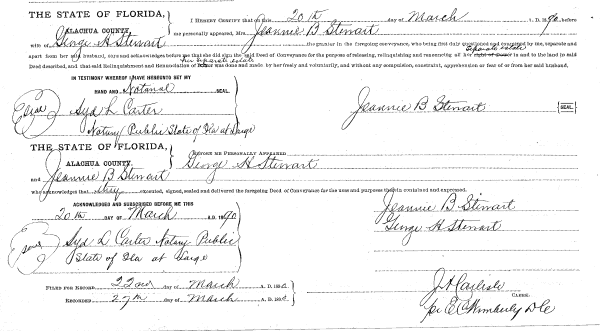 THE STATE OF FLORIDA,
ALACHUA COUNTY.
I HEREBY CERTIFY that on this 20th day of March A. D. 1890, before
me personally appeared, Mrs. Jeannie B Stewart
wife of George H Stewart the grantor in the foregoing conveyance, who being first duly questioned and examined by me, separate and
separate estate
apart from her said husband, did acknowledge before me that she did sign the said Deed of Conveyance for the purpose of releasing, relinquishing and renouncing all her in and to the land in said
her separate estate
Deed described, and that said Relinquishment and Renunciation of was done and made by her freely and voluntarily, and without any compulsion, constraint, apprehension or fear of or from her said husband.
IN TESTIMONY WHEREOF I HAVE HEREUNTO SET MY
HAND AND Notarial SEAL.
Seal
Syd L Carter
Notary Public State of Fla at Large
Jeannie B Stewart [SEAL]
THE STATE OF FLORIDA,
ALACHUA COUNTY.
BEFORE ME PERSONALLY APPEARED
George H Stewart
and Jeannie B Stewart
who acknowledges that they executed, signed, sealed and delivered the foregoing Deed of Conveyance for the uses and purposes therein contained and expressed.
ACKNOWLEDGED AND SUBSCRIBED BEFORE ME THIS
20th DAY OF March A.D. 1890
Jeannie B Stewart
George H Stewart
Syd L Carter Notary Public
State of Fla at Large
FILED FOR RECORD 22nd day of March A. D. 1890
RECORDED 27th day of March A. D. 1890
J A Carlisle
CLERK.
pr E C Wimberly D C